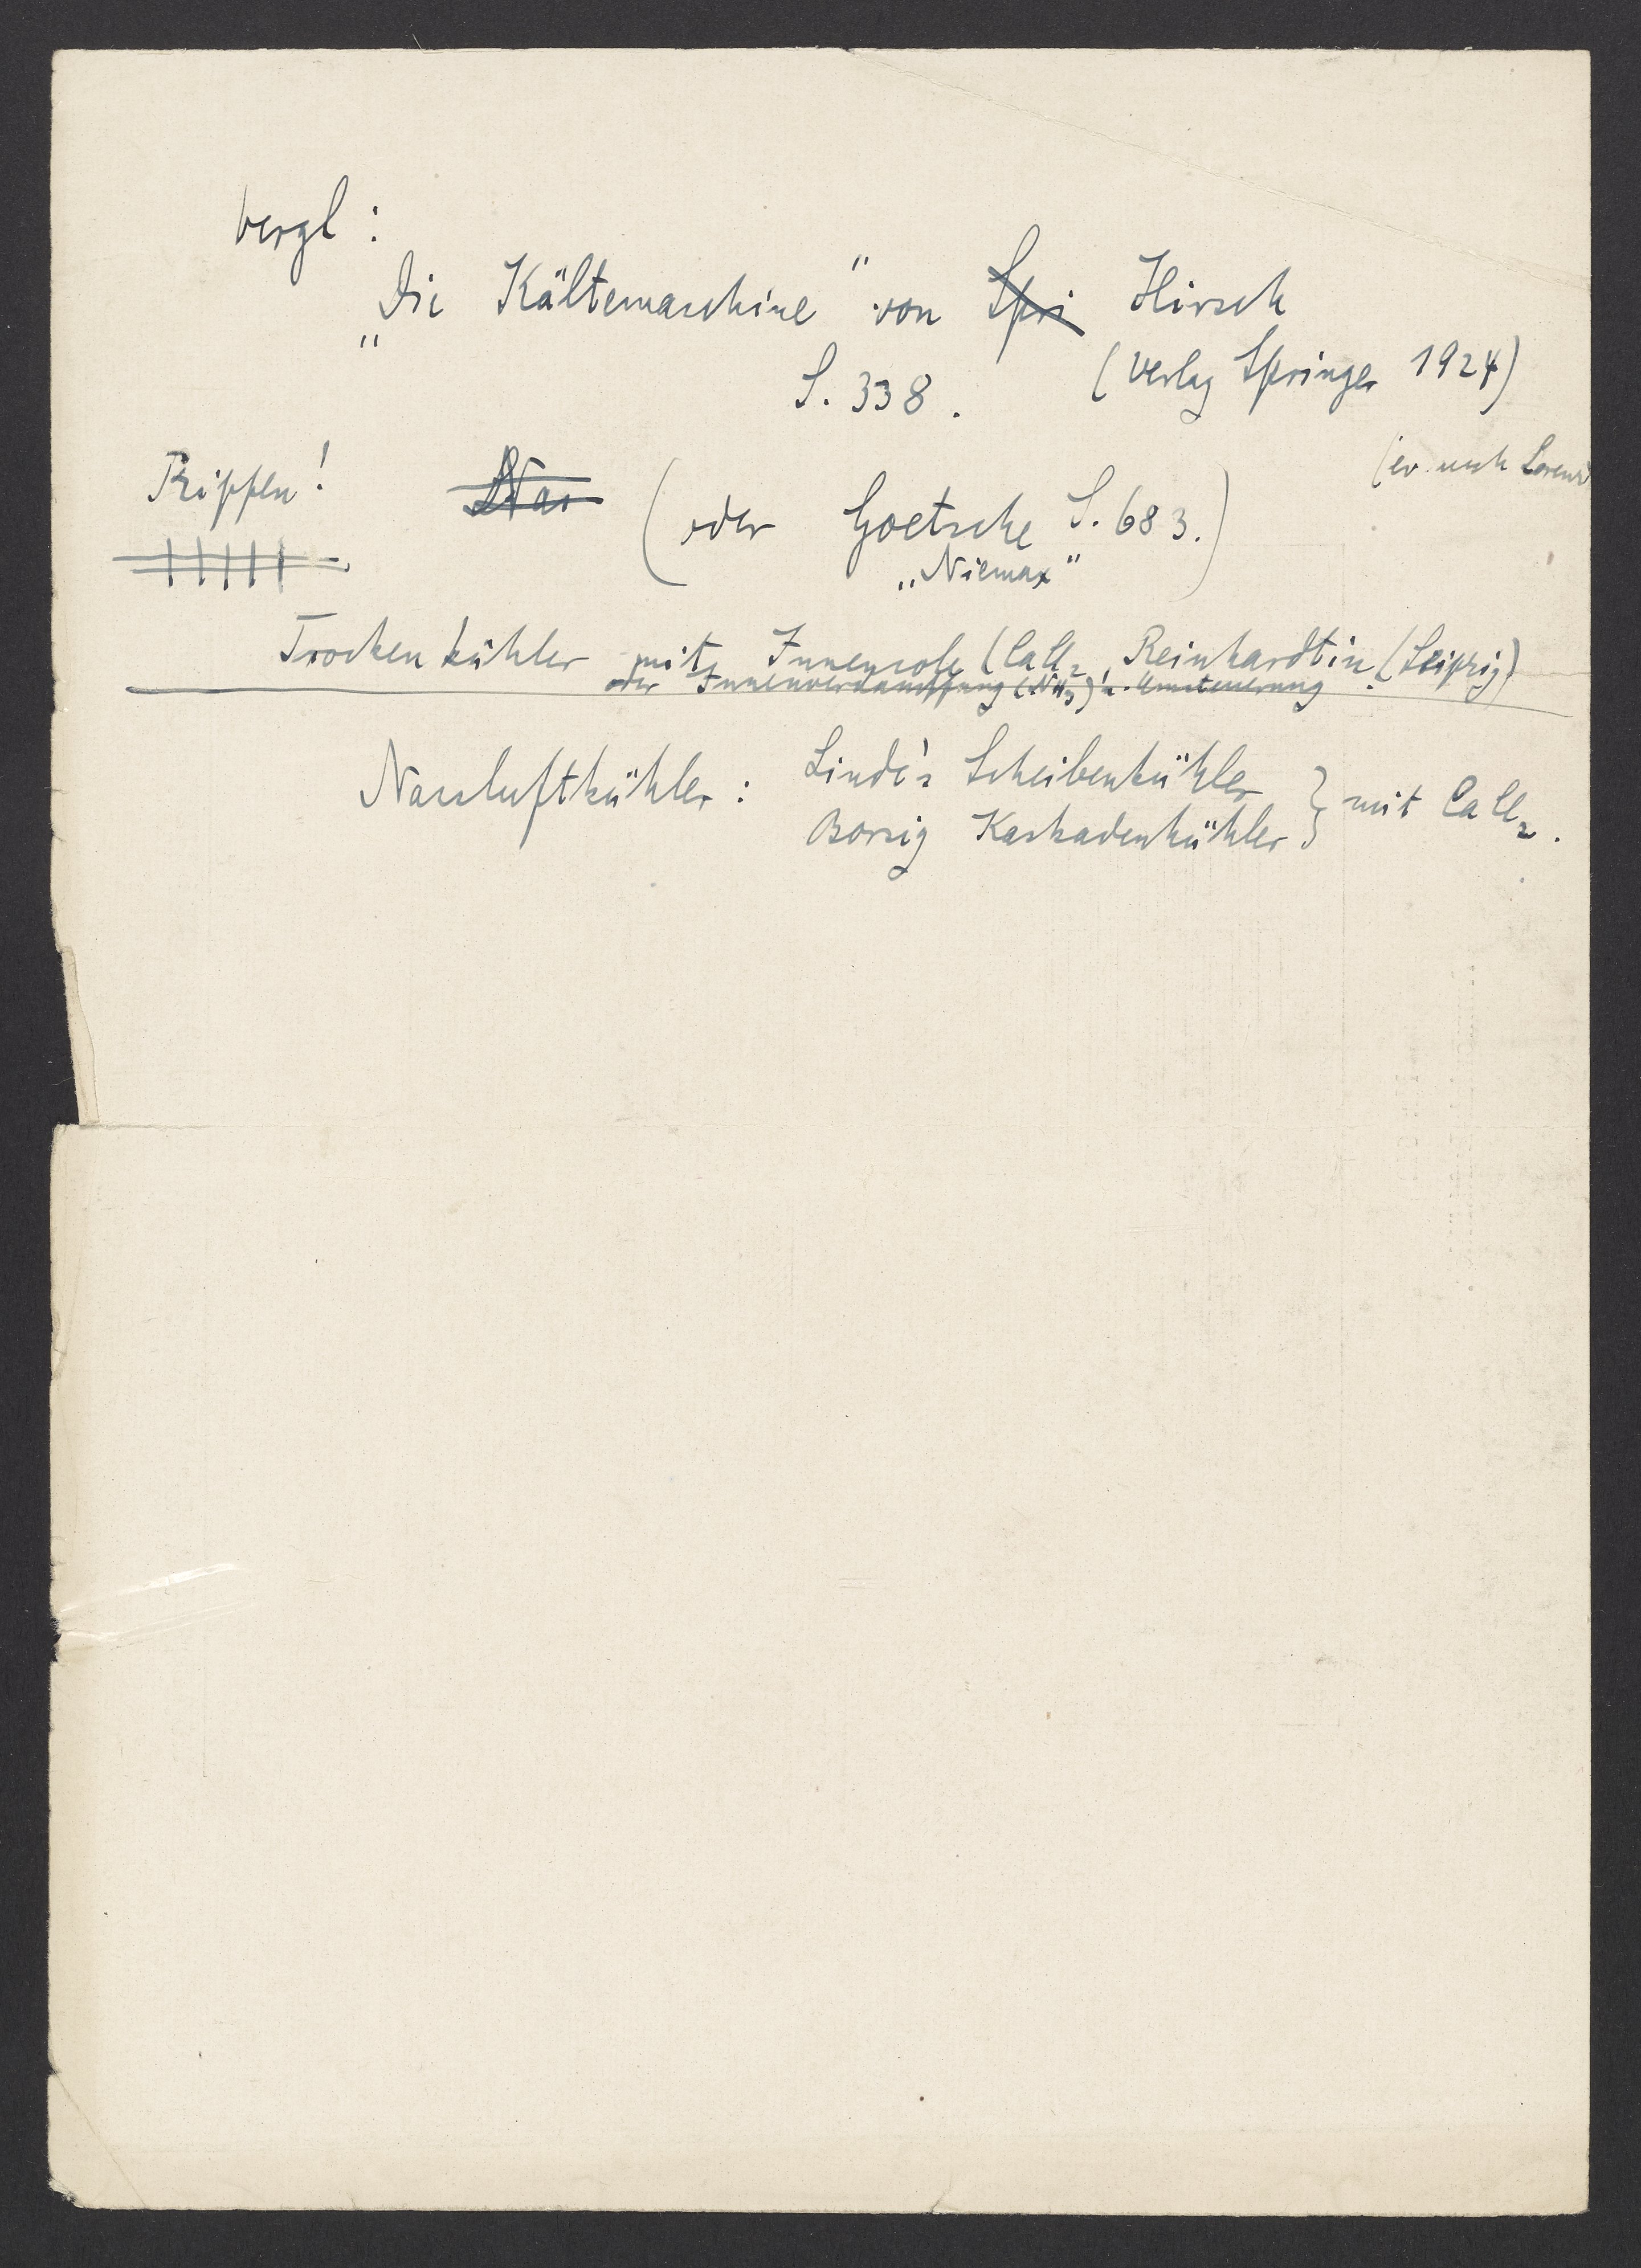 vergl :
„Die Kältemaschine" von Spri Hirsch
S. 338 . (Verlag Springer 1924)
(ev. nach Lorenz
Rippen ! Nas (oder Goetsche S. 683.)
„Niemax"
Trockenkühler mit Innensole (CaCl2, Reinhardtin (Leipzig)
oder Innenverdampfung (NH3) u. Umsteuerung
Nassluftkühler : Linde's Scheibenkühler
Borsig Kaskadenkühler } mit CaCl2 .